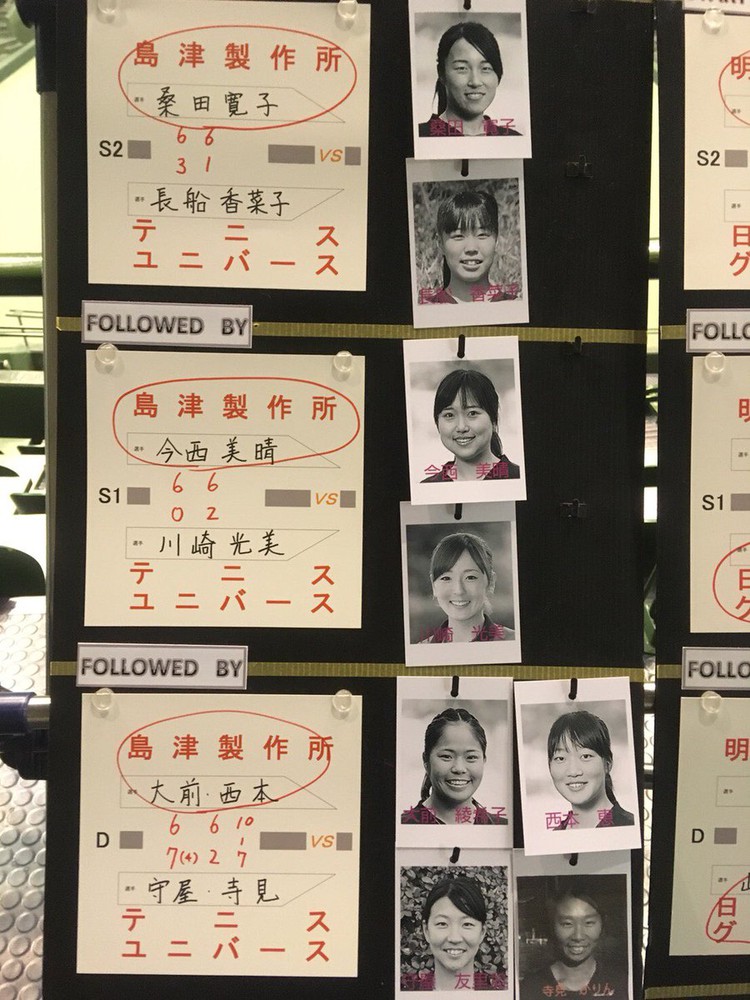 島津製作所
選手 桑田寛子
6 6
S2 VS
3 1
選手 長船香菜子
テニス
ユニバース
桑田 寛子
長船 香菜子
FOLLOWED BY
島津製作所
選手 今西美晴
6 6
S1 VS
0 2
選手 川崎光美
テニス
ユニバース
今西 美晴
川崎 光美
FOLLOWED BY
島津製作所
選手 大前・西本
6 6 10
D VS
7(4) 2 7
選手 守屋・寺見
テニス
ユニバース
大前 綾希子
西本 恵
守屋 友里
寺見 かりん
明
S2
日
グ
FOLLO
明
S1
日
グ
FOLLO
明
D
山
日
グ